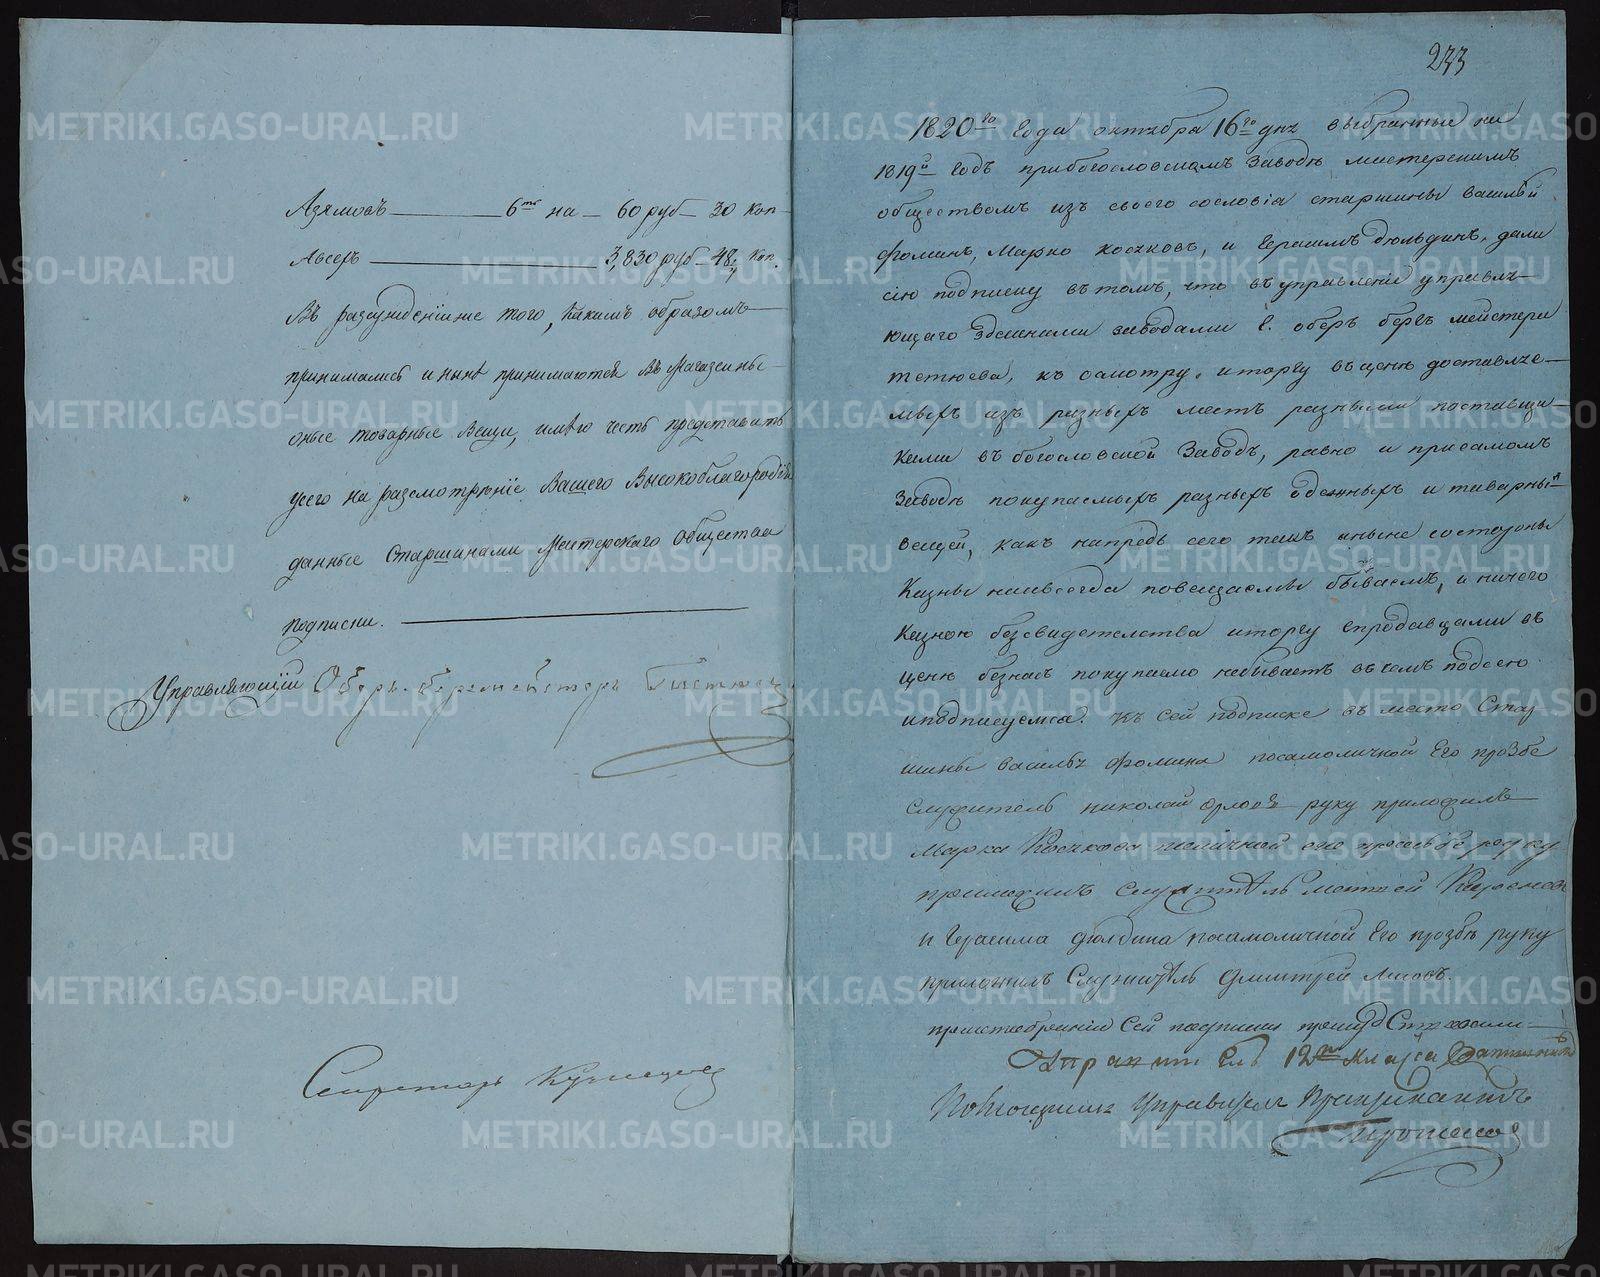 Азямовъ 6ть на 60 руб 30 коп
Авсего 3,830 руб 48 1/2 коп.
Въ разсужденіиже того, какимъ образомъ
принимались и нынѣ принимаются въ Магазеины
оные товарные вещи, имѣю честь представить
усего на разсмотрѣніе Вашего Высокоблагородія
данные Старшинами Мастерскаго общества
подписки.
Управляющій Оберъ-бергмейстеръ
Секретарь Кузнецов
233
1820го Года октября 16го дня выбранные на
1819й Годъ прибогословскомъ заводѣ мастерскимъ
обществомъ изъ своего сословія старшины Василѣй
Фоминъ, Марко Косяковъ, и Герасимъ Дюльдинъ, дали
сію подписку втомъ, что въ управленіи управля-
ющаго здешними заводами Г. оберъ бергъ мейстера
къ осмотру, иторгу въцене доставляе-
мыхъ изъ разныхъ местъ разными поставщи-
ками въ богословской Заводъ, равно и присамомъ
Заводе покупаемыхъ разныхъ одежныхъ и таварныхъ
вещей, какъ напредь сего такъ иныне состороны
Казны наивсегда повещаемы бываемъ, и ничего
казною безсвидетельства иторгу спродавцами въ
цене безнасъ покупаемо небываетъ вчемъ подсею
иподписуемса. къ сей подписке въ место Стар
шины Василья Фомина посамоличной Его прозбе
Служитель николай орловъ руку приложилъ
Марка Косякова поличной его прозбе руку
приложилъ Служитель Матвей
и Герасима Дюлдина посамоличной Его прозбѣ руку
приложилъ Служитель Дмитрей Лисовъ.
Сей подписки
12го класса
Управителя Практикантъ